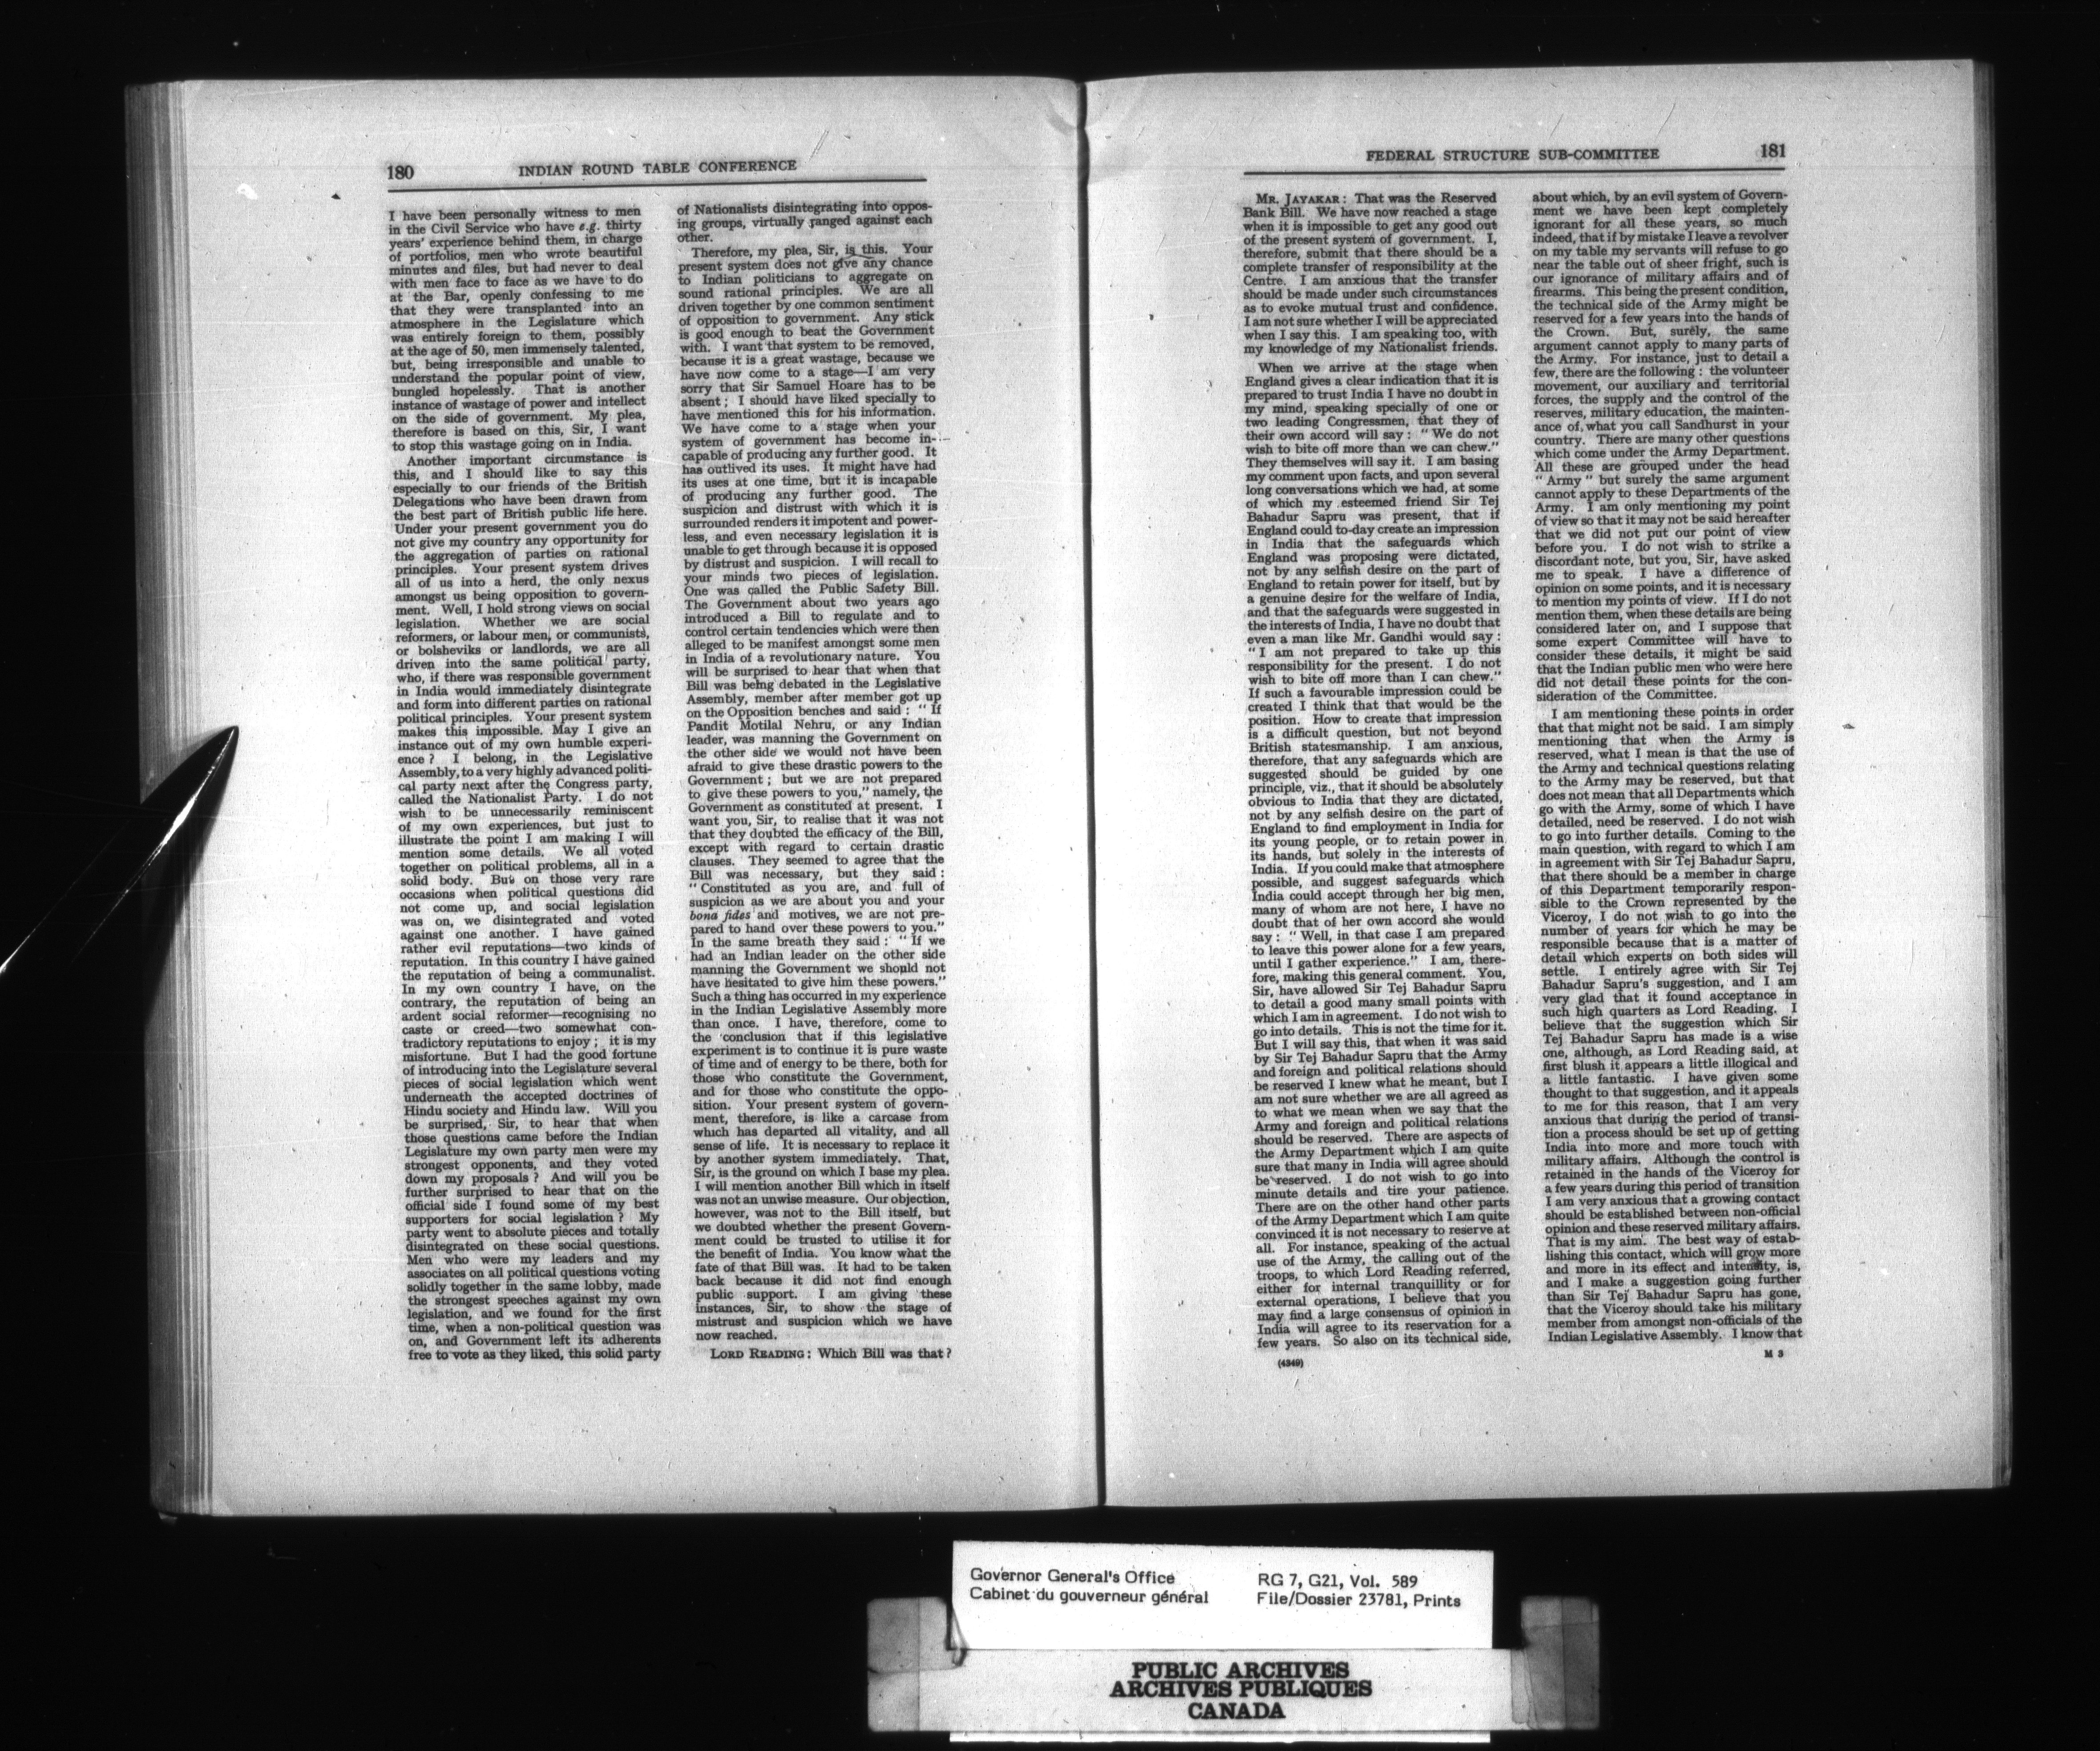 180 INDIAN ROUND TABLE CONFERENCE
I have been personally witness to men
in the Civil Service who have e.g. thirty
years' experience behind them, in charge
of portfolios, men who wrote beautiful
minutes and files, but had never to deal
with men face to face as we have to do
at the Bar, openly confessing to me
that they were transplanted into an
atmosphere in the Legislature which
was entirely foreign to them, possibly
at the age of 50, men immensely talented,
but, being irresponsible and unable to
understand the popular point of view,
bungled hopelessly. That is another
instance of wastage of power and intellect
on the side of government. My plea,
therefore is based on this, Sir, I want
to stop this wastage going on in India.
Another important circumstance is
this, and I should like to say this
especially to our friends of the British
Delegations who have been drawn from
the best part of British public life here.
Under your present government you do
not give my country any opportunity for
the aggregation of parties on rational
principles. Your present system drives
all of us into a herd, the only nexus
amongst us being opposition to govern-
ment. Well, I hold strong views on social
legislation. Whether we are social
reformers, or labour men, or communists,
or bolsheviks or landlords, we are all
driven into the same political party,
who, if there was responsible government
in India would immediately disintegrate
and form into different parties on rational
political principles. Your present system
makes this impossible. May I give an
instance out of my own humble experi-
ence? I belong, in the Legislative
Assembly, to a very highly advanced politi-
cal party next after the Congress party,
called the Nationalist Party. I do not
wish to be unnecessarily reminiscent
of my own experiences, but just to
illustrate the point I am making I will
mention some details. We all voted
together on political problems, all in a
solid body. But on those very rare
occasions when political questions did
not come up, and social legislation
was on, we disintegrated and voted
against one another. I have gained
rather evil reputations—two kinds of
reputation. In this country I have gained
the reputation of being a communalist.
In my own country I have, on the
contrary, the reputation of being an
ardent social reformer—recognising no
caste or creed—two somewhat con-
tradictory reputations to enjoy; it is my
misfortune. But I had the good fortune
of introducing into the Legislature several
pieces of social legislation which went
underneath the accepted doctrines of
Hindu society and Hindu law. Will you
be surprised, Sir, to hear that when
those questions came before the Indian
Legislature my own party men were my
strongest opponents, and they voted
down my proposals? And will you be
further surprised to hear that on the
official side I found some of my best
supporters for social legislation? My
party went to absolute pieces and totally
disintegrated on these social questions.
Men who were my leaders and my
associates on all political questions voting
solidly together in the same lobby, made
the strongest speeches against my own
legislation, and we found for the first
time, when a non-political question was
on, and Government left its adherents
free to vote as they liked, this solid party
of Nationalists disintegrating into oppos-
ing groups, virtually ranged against each
other.
Therefore, my plea, Sir, is this. Your
present system does not give any chance
to Indian politicians to aggregate on
sound rational principles. We are all
driven together by one common sentiment
of opposition to government. Any stick
is good enough to beat the Government
with. I want that system to be removed,
because it is a great wastage, because we
have now come to a stage—I am very
sorry that Sir Samuel Hoare has to be
absent; I should have liked specially to
have mentioned this for his information.
We have come to a stage when your
system of government has become in-
capable of producing any further good. It
has outlived its uses. It might have had
its uses at one time, but it is incapable
of producing any further good. The
suspicion and distrust with which it is
surrounded renders it impotent and power-
less, and even necessary legislation it is
unable to get through because it is opposed
by distrust and suspicion. I will recall to
your minds two pieces of legislation.
One was called the Public Safety Bill.
The Government about two years ago
introduced a Bill to regulate and to
control certain tendencies which were then
alleged to be manifest amongst some men
in India of a revolutionary nature. You
will be surprised to hear that when that
Bill was being debated in the Legislative
Assembly, member after member got up
on the Opposition benches and said: "If
Pandit Motilal Nehru, or any Indian
leader, was manning the Government on
the other side we would not have been
afraid to give these drastic powers to the
Government; but we are not prepared
to give these powers to you," namely, the
Government as constituted at present. I
want you, Sir, to realise that it was not
that they doubted the efficacy of the Bill,
except with regard to certain drastic
clauses. They seemed to agree that the
Bill was necessary, but they said:
"Constituted as you are, and full of
suspicion as we are about you and your
bona fides and motives, we are not pre-
pared to hand over these powers to you."
In the same breath they said: "If we
had an Indian leader on the other side
manning the Government we should not
have hesitated to give him these powers."
Such a thing has occurred in my experience
in the Indian Legislative Assembly more
than once. I have, therefore, come to
the conclusion that if this legislative
experiment is to continue it is pure waste
of time and of energy to be there, both for
those who constitute the Government,
and for those who constitute the oppo-
sition. Your present system of govern-
ment, therefore, is like a carcase from
which has departed all vitality, and all
sense of life. It is necessary to replace it
by another system immediately. That,
Sir, is the ground on which I base my plea.
I will mention another Bill which in itself
was not an unwise measure. Our objection,
however, was not to the Bill itself, but
we doubted whether the present Govern-
ment could be trusted to utilise it for
the benefit of India. You know what the
fate of that Bill was. It had to be taken
back because it did not find enough
public support. I am giving these
instances, Sir, to show the stage of
mistrust and suspicion which we have
now reached.
LORD READING: Which Bill was that?
FEDERAL STRUCTURE SUB-COMMITTEE 181
MR. JAYAKAR: That was the Reserved
Bank Bill. We have now reached a stage
when it is impossible to get any good out
of the present system of government. I,
therefore, submit that there should be a
complete transfer of responsibility at the
Centre. I am anxious that the transfer
should be made under such circumstances
as to evoke mutual trust and confidence.
I am not sure whether I will be appreciated
when I say this. I am speaking too, with
my knowledge of my Nationalist friends.
When we arrive at the stage when
England gives a clear indication that it is
prepared to trust India I have no doubt in
my mind, speaking specially of one or
two leading Congressmen, that they of
their own accord will say: "We do not
wish to bite off more than we can chew."
They themselves will say it. I am basing
my comment upon facts, and upon several
long conversations which we had, at some
of which my esteemed friend Sir Tej
Bahadur Sapru was present, that if
England could to-day create an impression
in India that the safeguards which
England was proposing were dictated,
not by any selfish desire on the part of
England to retain power for itself, but by
a genuine desire for the welfare of India,
and that the safeguards were suggested in
the interests of India, I have no doubt that
even a man like Mr. Gandhi would say:
"I am not prepared to take up this
responsibility for the present. I do not
wish to bite off more than I can chew."
If such a favourable impression could be
created I think that that would be the
position. How to create that impression
is a difficult question, but not beyond
British statesmanship. I am anxious,
therefore, that any safeguards which are
suggested should be guided by one
principle, viz., that it should be absolutely
obvious to India that they are dictated,
not by any selfish desire on the part of
England to find employment in India for
its young people, or to retain power in
its hands, but solely in the interests of
India. If you could make that atmosphere
possible, and suggest safeguards which
India could accept through her big men,
many of whom are not here, I have no
doubt that of her own accord she would
say: "Well, in that case I am prepared
to leave this power alone for a few years,
until I gather experience." I am, there-
fore, making this general comment. You,
Sir, have allowed Sir Tej Bahadur Sapru
to detail a good many small points with
which I am in agreement. I do not wish to
go into details. This is not the time for it.
But I will say this, that when it was said
by Sir Tej Bahadur Sapru that the Army
and foreign and political relations should
be reserved I knew what he meant, but I
am not sure whether we are all agreed as
to what we mean when we say that the
Army and foreign and political relations
should be reserved. There are aspects of
the Army Department which I am quite
sure that many in India will agree should
be reserved. I do not wish to go into
minute details and tire your patience.
There are on the other hand other parts
of the Army Department which I am quite
convinced it is not necessary to reserve at
all. For instance, speaking of the actual
use of the Army, the calling out of the
troops, to which Lord Reading referred,
either for internal tranquillity or for
external operations, I believe that you
may find a large consensus of opinion in
India will agree to its reservation for a
few years. So also on its technical side,
(4349)
about which, by an evil system of Govern-
ment we have been kept completely
ignorant for all these years, so much
indeed, that if by mistake I leave a revolver
on my table my servants will refuse to go
near the table out of sheer fright, such is
our ignorance of military affairs and of
firearms. This being the present condition,
the technical side of the Army might be
reserved for a few years into the hands of
the Crown. But, surely, the same
argument cannot apply to many parts of
the Army. For instance, just to detail a
few, there are the following: the volunteer
movement, our auxiliary and territorial
forces, the supply and the control of the
reserves, military education, the mainten-
ance of, what you call Sandhurst in your
country. There are many other questions
which come under the Army Department.
All these are grouped under the head
"Army" but surely the same argument
cannot apply to these Departments of the
Army. I am only mentioning my point
of view so that it may not be said hereafter
that we did not put our point of view
before you. I do not wish to strike a
discordant note, but you, Sir, have asked
me to speak. I have a difference of
opinion on some points, and it is necessary
to mention my points of view. If I do not
mention them, when these details are being
considered later on, and I suppose that
some expert Committee will have to
consider these details, it might be said
that the Indian public men who were here
did not detail these points for the con-
sideration of the Committee.
I am mentioning these points in order
that that might not be said. I am simply
mentioning that when the Army is
reserved, what I mean is that the use of
the Army and technical questions relating
to the Army may be reserved, but that
does not mean that all Departments which
go with the Army, some of which I have
detailed, need be reserved. I do not wish
to go into further details. Coming to the
main question, with regard to which I am
in agreement with Sir Tej Bahadur Sapru,
that there should be a member in charge
of this Department temporarily respon-
sible to the Crown represented by the
Viceroy, I do not wish to go into the
number of years for which he may be
responsible because that is a matter of
detail which experts on both sides will
settle. I entirely agree with Sir Tej
Bahadur Sapru's suggestion, and I am
very glad that it found acceptance in
such high quarters as Lord Reading. I
believe that the suggestion which Sir
Tej Bahadur Sapru has made is a wise
one, although, as Lord Reading said, at
first blush it appears a little illogical and
a little fantastic. I have given some
thought to that suggestion, and it appeals
to me for this reason, that I am very
anxious that during the period of transi-
tion a process should be set up of getting
India into more and more touch with
military affairs. Although the control is
retained in the hands of the Viceroy for
a few years during this period of transition
I am very anxious that a growing contact
should be established between non-official
opinion and these reserved military affairs.
That is my aim. The best way of estab-
lishing this contact, which will grow more
and more in its effect and intensity, is,
and I make a suggestion going further
than Sir Tej Bahadur Sapru has gone,
that the Viceroy should take his military
member from amongst non-officials of the
Indian Legislative Assembly. I know that
M 3
Governor General's Office
Cabinet du gouverneur général
RG 7, G21, Vol. 589
File/Dossier 23781, Prints
PUBLIC ARCHIVES
ARCHIVES PUBLIQUES
CANADA